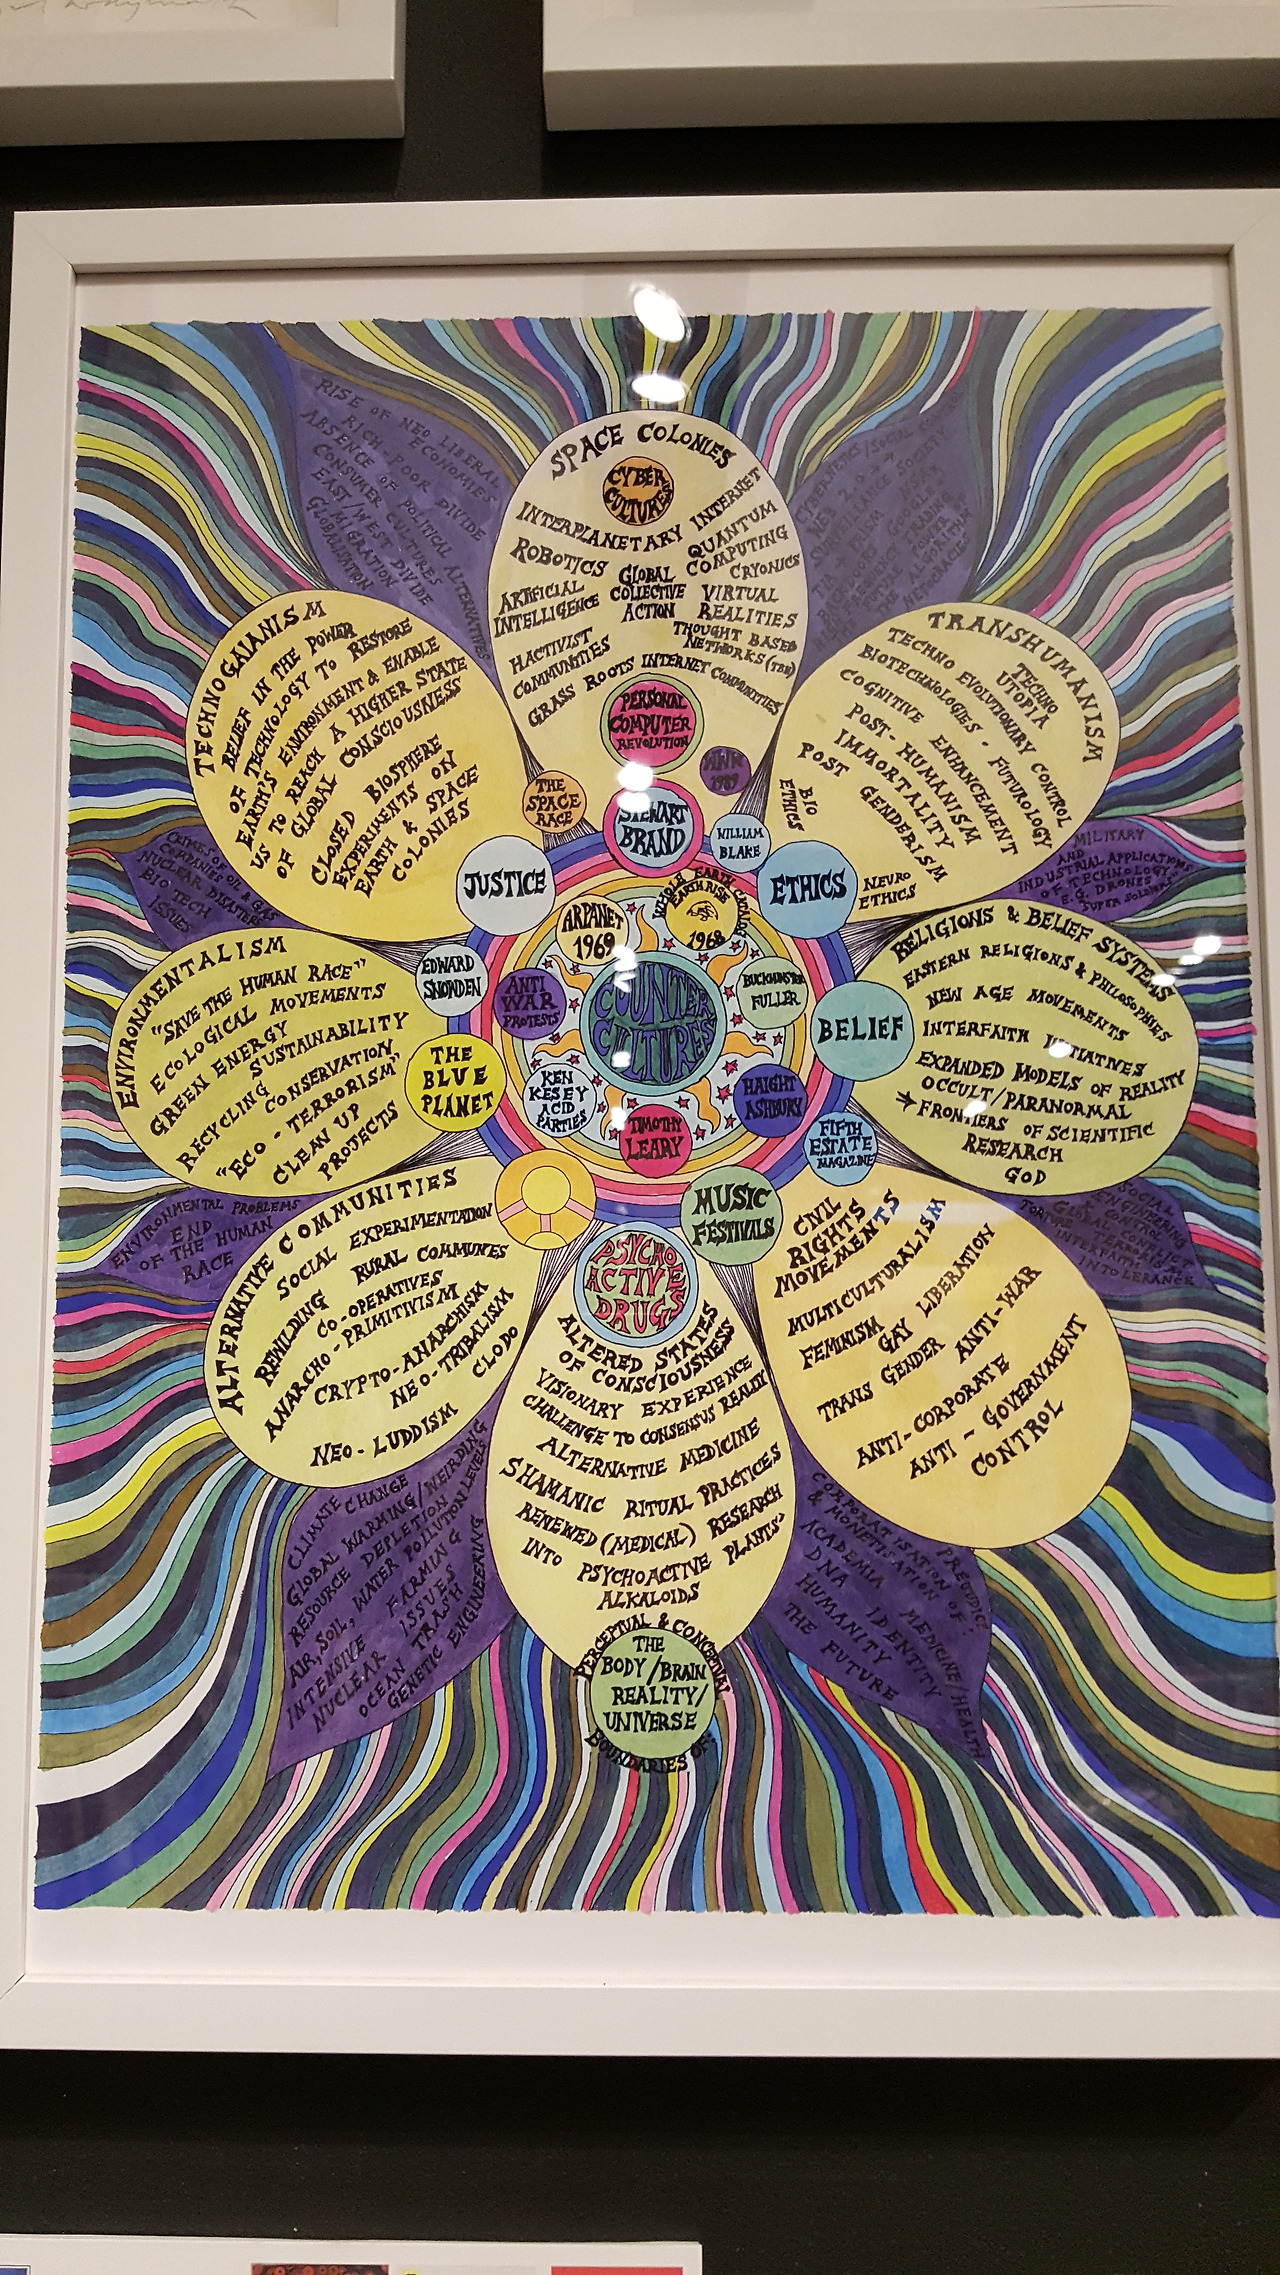 RISE OF NEO LIBERAL
ECONOMIES
RICH-POOR DIVIDE
ABSENCE OF POLITICAL ALTERNATIVES
CONSUMER CULTURES
EAST/WEST DIVIDE
MIGRATION
GLOBALISATION
SPACE COLONIES
CYBER
CULTURES
INTERPLANETARY INTERNET
ROBOTICS
QUANTUM
COMPUTING
CRYONICS
ARTIFICIAL
INTELLIGENCE
GLOBAL
COLLECTIVE
ACTION
VIRTUAL
REALITIES
HACTIVIST
COMMUNITIES
THOUGHT BASED
NETWORKS (TBN)
GRASS ROOTS INTERNET COMMUNITIES
PERSONAL
COMPUTER
REVOLUTION
WWW
1989
STEWART
BRAND
WILLIAM
BLAKE
THE
SPACE
RACE
CYBERNETICS/SOCIAL
WEB 2.0
SOCIETY
TECHNOGAIANISM
BELIEF IN THE POWER
OF TECHNOLOGY TO RESTORE
EARTH'S ENVIRONMENT & ENABLE
US TO REACH A HIGHER STATE
OF GLOBAL CONSCIOUSNESS
CLOSED BIOSPHERE
EXPERIMENTS ON
EARTH & SPACE
COLONIES
TRANSHUMANISM
TECHNO
UTOPIA
TECHNO EVOLUTIONARY CONTROL
BIOTECHNOLOGIES - FUTUROLOGY
COGNITIVE ENHANCEMENT
POST-HUMANISM
IMMORTALITY
POST GENDERISM
BIO
ETHICS
NEURO
ETHICS
MILITARY
AND
INDUSTRIAL APPLICATIONS
OF TECHNOLOGY
E.G. DRONES
SUPER SOLDIERS
CRIMES OF OIL & GAS
COMPANIES
NUCLEAR DISASTERS
BIO TECH
ISSUES
JUSTICE
ETHICS
ARPANET
1969
WHOLE EARTH CATALOG
EARTHRISE
1968
EDWARD
SNOWDEN
ANTI
WAR
PROTESTS
COUNTER
CULTURES
BUCKMINSTER
FULLER
BELIEF
THE
BLUE
PLANET
KEN
KESEY
ACID
PARTIES
TIMOTHY
LEARY
HAIGHT
ASHBURY
FIFTH
ESTATE
MAGAZINE
MUSIC
FESTIVALS
ENVIRONMENTALISM
"SAVE THE HUMAN RACE"
ECOLOGICAL MOVEMENTS
GREEN ENERGY
SUSTAINABILITY
RECYCLING CONSERVATION
"ECO-TERRORISM"
CLEAN UP
PROJECTS
RELIGIONS & BELIEF SYSTEMS
EASTERN RELIGIONS & PHILOSOPHIES
NEW AGE MOVEMENTS
INTERFAITH INITIATIVES
EXPANDED MODELS OF REALITY
OCCULT/PARANORMAL
→ FRONTIERS OF SCIENTIFIC
RESEARCH
GOD
ENVIRONMENTAL PROBLEMS
END
OF THE HUMAN
RACE
SOCIAL
ENGINEERING
INTOLERANCE
ALTERNATIVE COMMUNITIES
SOCIAL EXPERIMENTATION
RURAL COMMUNES
REWILDING
CO-OPERATIVES
ANARCHO-PRIMITIVISM
CRYPTO-ANARCHISM
NEO-TRIBALISM
CLODO
NEO-LUDDISM
PSYCHO
ACTIVE
DRUGS
ALTERED STATES
OF CONSCIOUSNESS
VISIONARY EXPERIENCE
CHALLENGE TO CONSENSUS REALITY
ALTERNATIVE MEDICINE
SHAMANIC RITUAL PRACTICES
RENEWED (MEDICAL) RESEARCH
INTO PSYCHOACTIVE PLANTS'
ALKALOIDS
PERCEPTUAL & CONCEPTUAL
BOUNDARIES OF:
THE
BODY/BRAIN
REALITY/
UNIVERSE
CIVIL
RIGHTS
MOVEMENTS
MULTICULTURALISM
FEMINISM GAY LIBERATION
TRANS GENDER ANTI-WAR
ANTI-CORPORATE
ANTI-GOVERNMENT
CONTROL
CLIMATE CHANGE
GLOBAL WARMING/WEIRDING
RESOURCE DEPLETION
AIR, SOIL, WATER POLLUTION LEVELS
INTENSIVE FARMING
NUCLEAR ISSUES
OCEAN TRASH
GENETIC ENGINEERING
PREJUDICE
CORPORATISATION
& MONETISATION OF:
ACADEMIA MEDICINE/HEALTH
DNA IDENTITY
HUMANITY
THE FUTURE